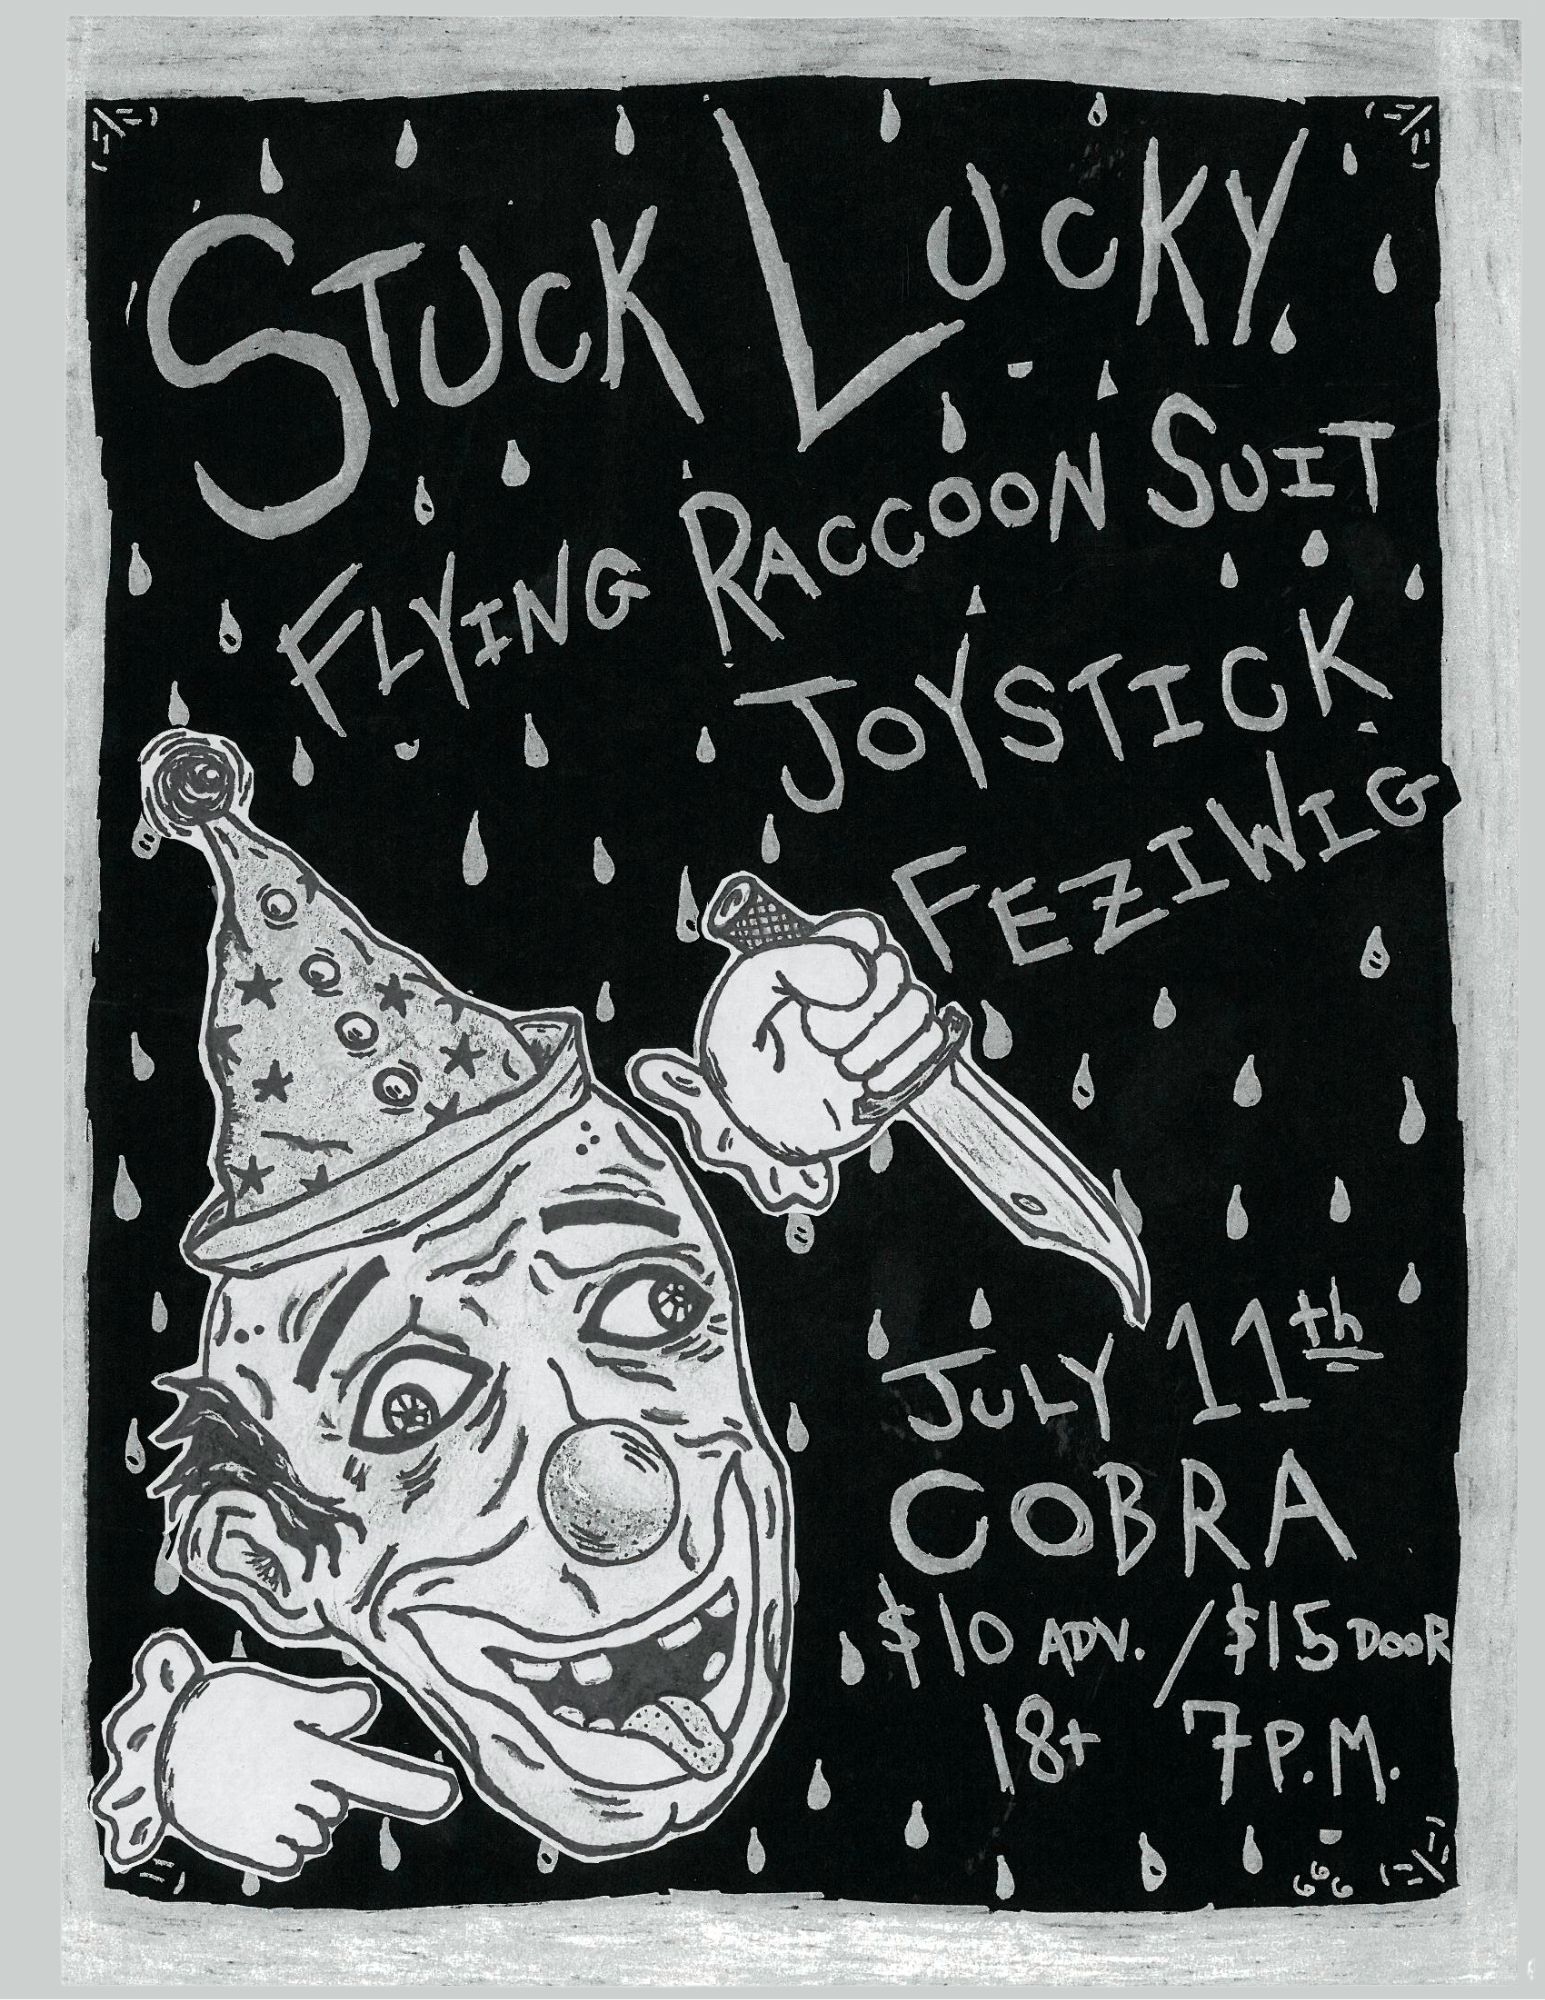 STUCK LUCKY
FLYING RACCOON SUIT
JOYSTICK
FEZIWIG
JULY 11th
COBRA
$10 ADV. / $15 DOOR
18+ 7 P.M.
666